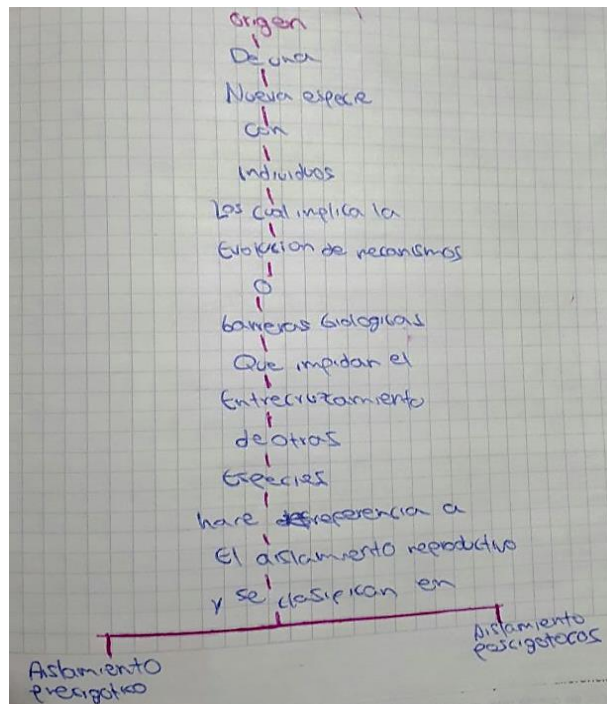 Origen
De una
Nueva especie
con
Individuos
Los cual inplica la
Evolucion de mecanismos
O
barreras biologicas
Que impidan el
Entrecruzamiento
de otras
Especies
hace referencia a
El aislamiento reproductivo
y se clasifican en
Aislamiento
Aislamiento
poscigotocos
precigotico